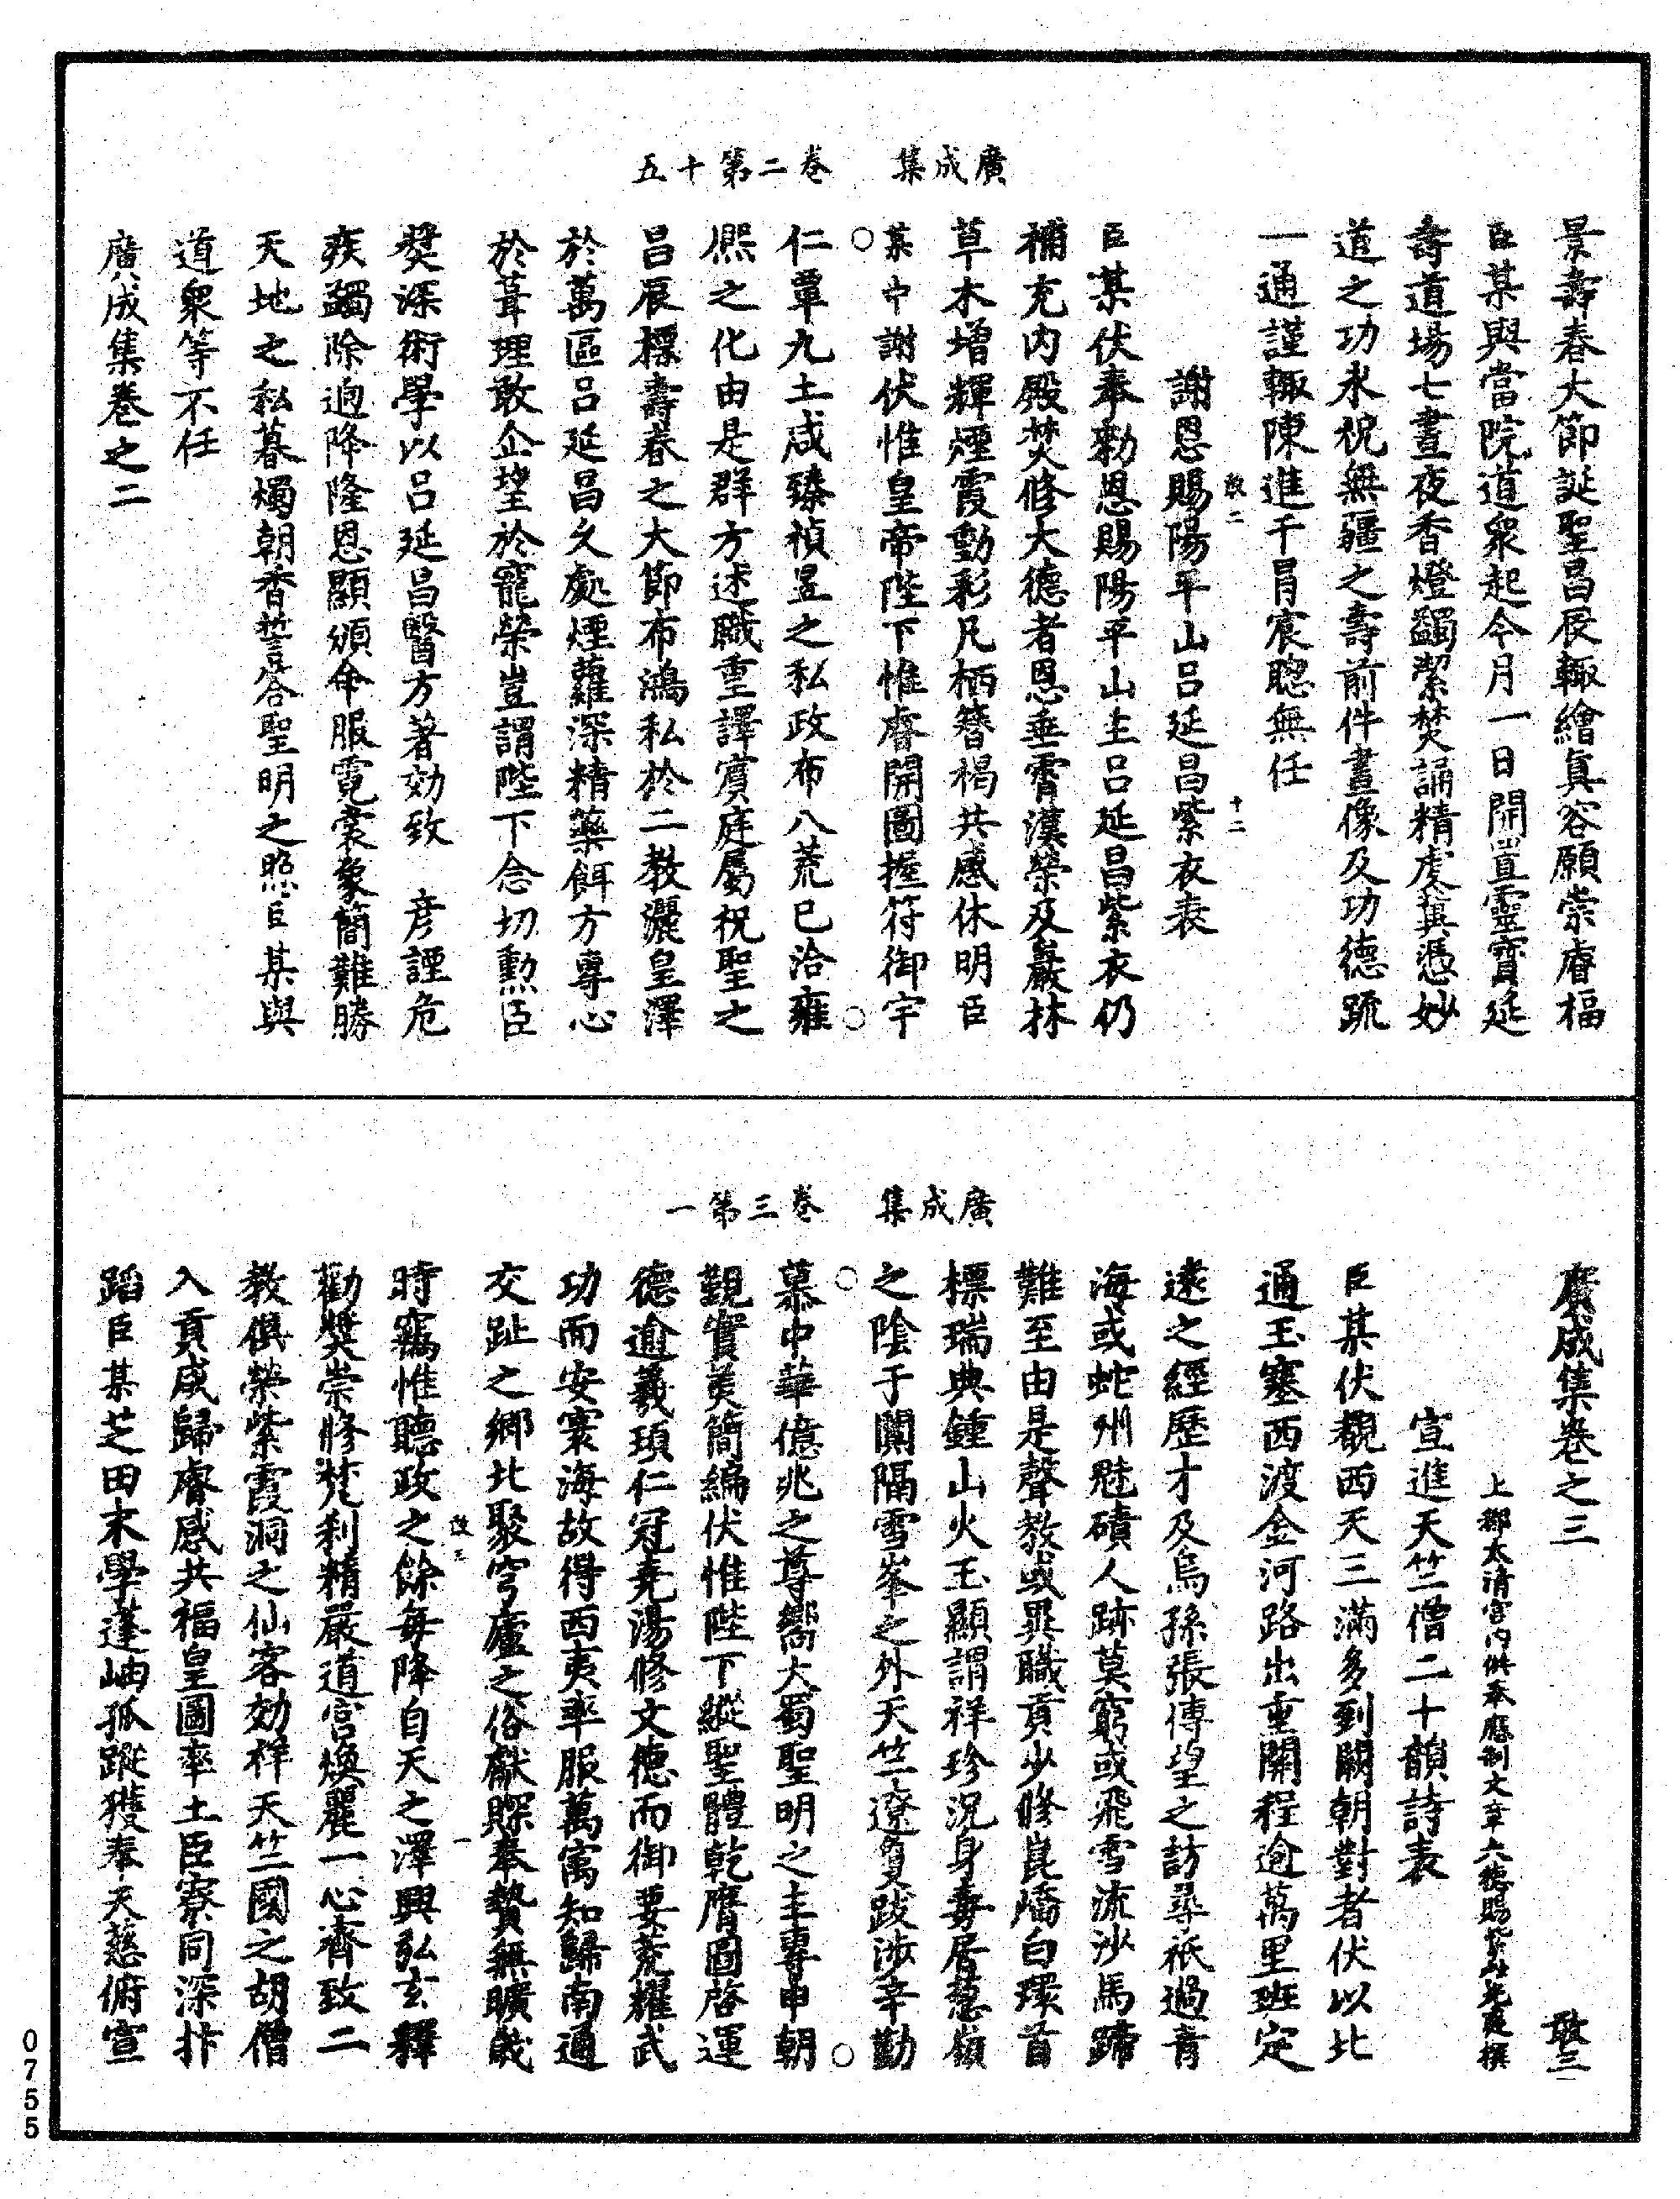 廣成集　卷二第十五
景壽春大節誕聖昌辰輙繪真容願崇睿福
臣某與當院道衆起今月一日開置靈寶延
壽道場七晝夜香燈蠲潔焚誦精虔冀憑妙
道之功永祝無疆之壽前件畫像及功德䟽
一通謹輙陳進干冒宸聰無任
敢二　十二
謝恩賜陽平山呂延昌紫衣表
臣某伏奉勑恩賜陽平山主呂延昌紫衣仍
補充内殿焚修大德者恩垂霄漢榮及巖林
草木增輝煙霞動彩凡栖簪褐共感休明臣
某中謝伏惟皇帝陛下惟睿開圖握符御宇
仁覃九土咸臻禎昱之私政布八荒已洽雍
熈之化由是群方述職重譯賓庭屬祝聖之
昌辰標壽春之大節布鴻私於二教灑皇澤
於萬區呂延昌久處煙蘿深精藥餌方專心
於葺理敢企望於寵榮豈謂陛下念切勲臣
奬深術學以呂延昌醫方著効致彦謹危
疾蠲除迥降隆恩顯頒命服霓裳象簡難勝
天地之私暮燭朝香誓答聖明之照臣某與
道衆等不任
廣成集卷之二
廣成集　卷三第一
廣成集卷之三　敢三
上都太清宮内供奉應制文章大德賜紫杜光庭撰
宣進天竺僧二十韻詩表
臣某伏覩西天三滿多到闕朝對者伏以北
通玉塞西渡金河路出重關程逾萬里班定
遠之經歷才及烏孫張博望之訪尋祇過青
海或蛇州魅磧人跡莫窮或飛雪流沙馬蹄
難至由是聲教或異職貢少修崑嶠白環首
標瑞典鍾山火玉顯謂祥珍況身毒居葱嶺
之陰于闐隔雪峯之外天竺遼敻跋涉辛勤
慕中華億兆之尊嚮大蜀聖明之主專申朝
覲實羙簡編伏惟陛下縱聖體乾膺圖啓運
德逾羲頊仁冠堯湯修文德而御要荒耀武
功而安寰海故得西夷率服萬寓知歸南通
交趾之鄉北聚穹廬之俗獻賝奉贄無曠歲
敢三　一
時竊惟聽政之餘每降自天之澤興弘玄釋
勸奬崇修梵刹精嚴道宫煥麗一心齊致二
教俱榮紫霞洞之仙客効祥天竺國之胡僧
入貢咸歸睿感共福皇圖率土臣寮同深抃
蹈臣某芝田末學蓬岫孤蹤獲奉天慈俯宣
0755